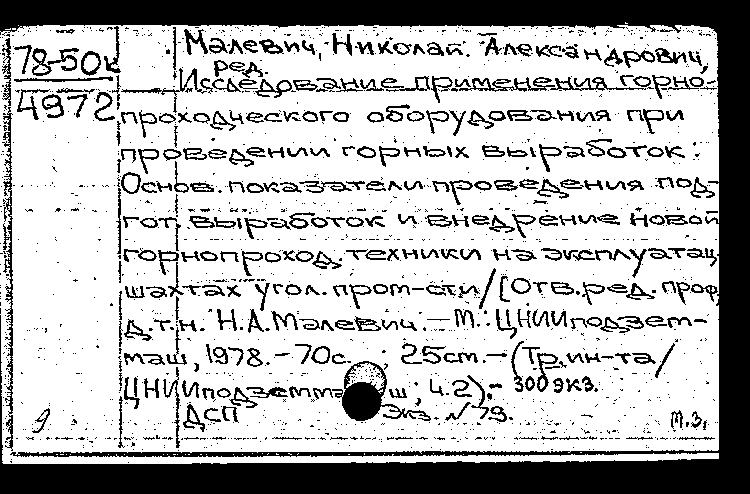 78-50к
4972
Малевич, Николай Александрович,
ред.
Исследование применения горно-
проходческого оборудования при
проведении горных выработок:
Основ. показатели проведения под-
гот. выработок и внедрение новой
горнопроход. техники на эксплуатац.
шахтах угол. пром-сти/[Отв. ред. проф,
д.т.н. Н.А. Малевич. - М.: ЦНИИподзем-
маш, 1978. - 70с. ; 25см. - (Тр. ин-та/
ЦНИИподземмаш; ч.2). - 300 экз.
ДСП Экз. N 79.
9 М.З.